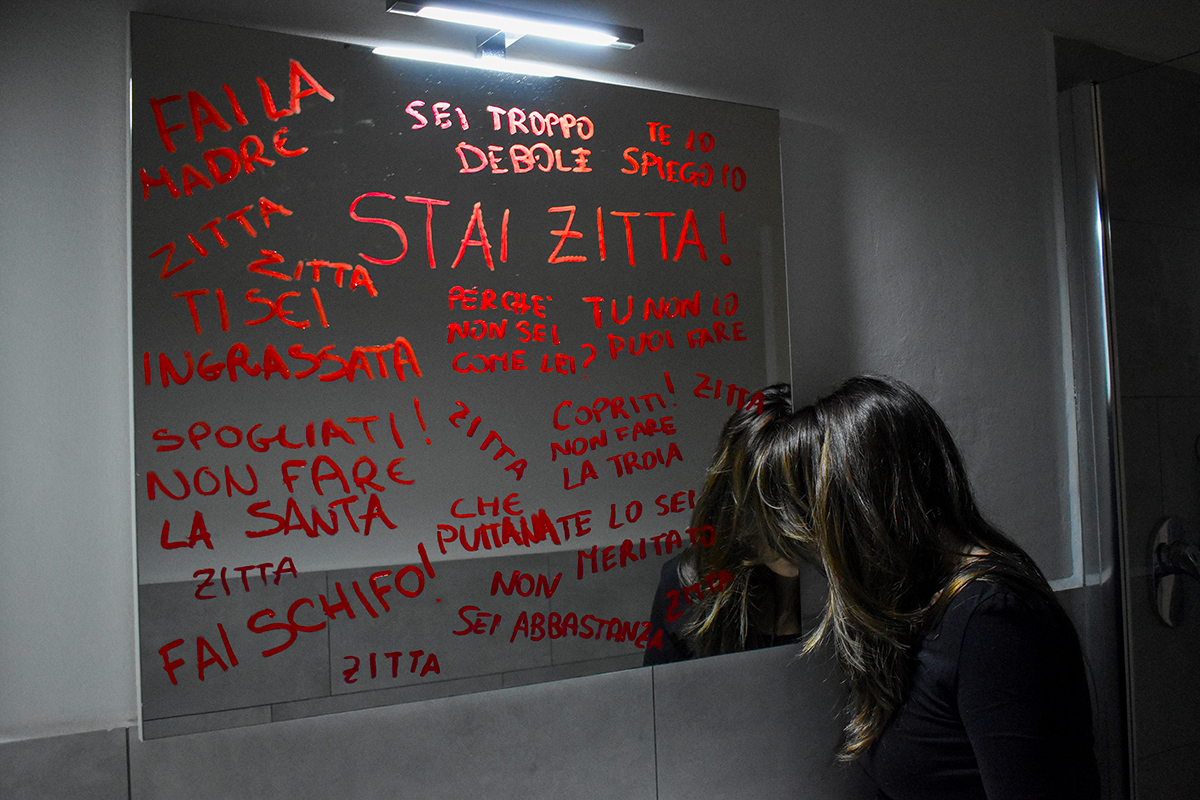 FAI LA
MADRE
SEI TROPPO
DEBOLE
TE LO
SPIEGO IO
ZITTA
STAI ZITTA!
ZITTA
TI SEI
INGRASSATA
PERCHE'
NON SEI
COME LEI?
TU NON LO
PUOI FARE
SPOGLIATI!
NON FARE
LA SANTA
ZITTA
COPRITI!
NON FARE
LA TROIA
ZITTA
CHE
PUTTANA
TE LO SEI
MERITATO
ZITTA
FAI SCHIFO!
NON
SEI ABBASTANZA
ZITTA
ZITTA